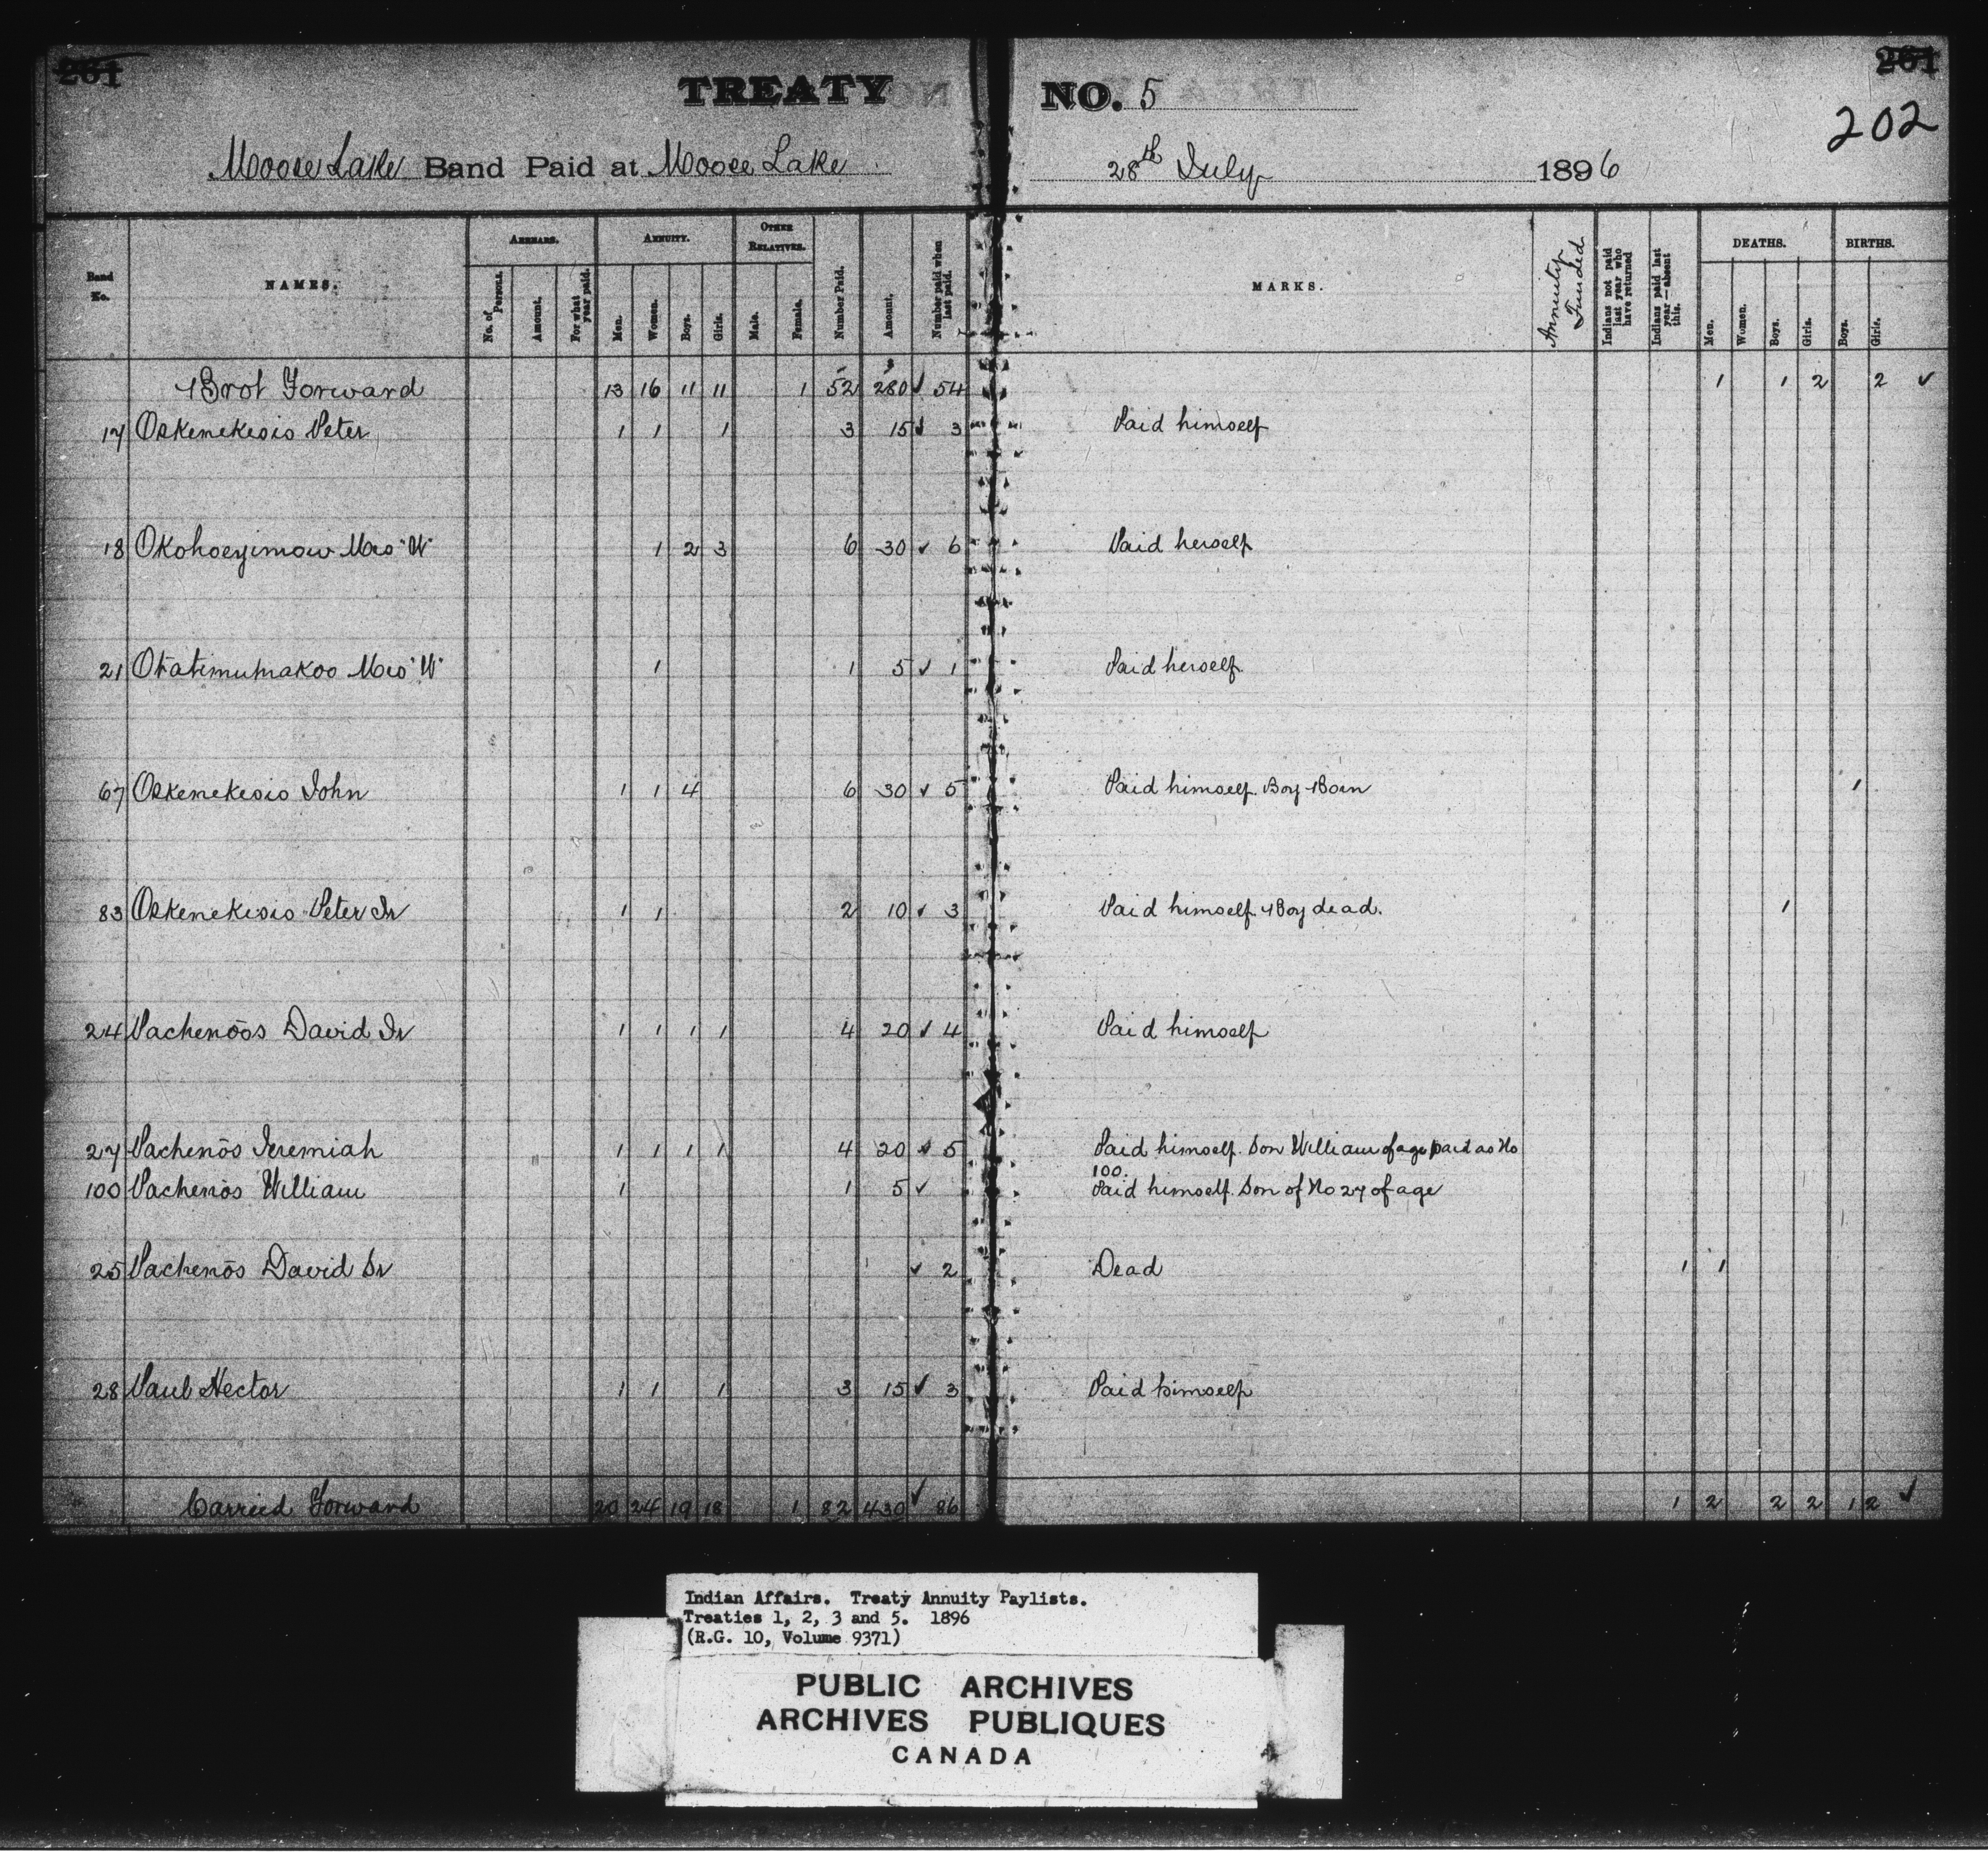 261
261
202
TREATY NO. 5
Moose Lake Band Paid at Moose Lake 28th July 1896
Band No.
NAMES.
ARREARS.
No. of Persons.
Amount.
For what year paid.
ANNUITY.
Men.
Women.
Boys.
Girls.
OTHER RELATIVES.
Male.
Female.
Number Paid.
Amount.
Number paid when last paid.
MARKS.
Annuity Funded
Indians not paid last year who have returned
Indians paid last year—absent this.
DEATHS.
Men.
Women.
Boys.
Girls.
BIRTHS.
Boys.
Girls.
Brot Forward 13 16 11 11 1 52 280 ✓ 54 1 1 2 2 ✓
17 Oskenekesis Peter 1 1 1 3 15 ✓ 3 Paid himself
18 Okohoeyimow Mrs "W" 1 2 3 6 30 ✓ 6 Paid herself
21 Mrs "W" 1 1 5 ✓ 1 Paid herself
67 Oskenekesis John 1 1 4 6 30 ✓ 5 Paid himself. Boy Born 1
83 Oskenekesis Peter Jr 1 1 2 10 ✓ 3 Paid himself. Boy dead. 1
24 Pachenōos David Jr 1 1 1 1 4 20 ✓ 4 Paid himself
27 Pachenōs Jeremiah 1 1 1 1 4 20 ✓ 5 Paid himself. Son William of age paid as No
100.
100 Pachenōs William 1 1 5 ✓ Paid himself. Son of No 27 of age
25 Pachenōs David Sr ✓ 2 Dead 1 1
28 Paul Hector 1 1 1 3 15 ✓ 3 Paid himself
Carried Forward 20 24 19 18 1 82 430 ✓ 86 1 2 2 2 1 2 ✓
Indian Affairs. Treaty Annuity Paylists.
Treaties 1, 2, 3 and 5. 1896
(R.G. 10, Volume 9371)
PUBLIC ARCHIVES
ARCHIVES PUBLIQUES
CANADA